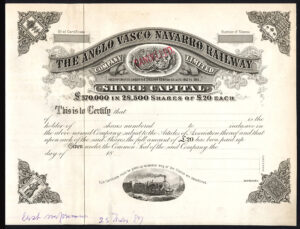 No. of Certificate
Number of Shares
THE ANGLO VASCO NAVARRO RAILWAY
COMPANY LIMITED
SHARE CAPITAL
£570,000 IN 28,500 SHARES OF £20 EACH.
This is to Certify that
is the
holder of shares numbered to inclusive in
the above named Company subject to the Articles of Association thereof and that
upon each of the said Shares the full amount of £20 has been paid up
Given under the Common Seal of the said Company the
day of 18